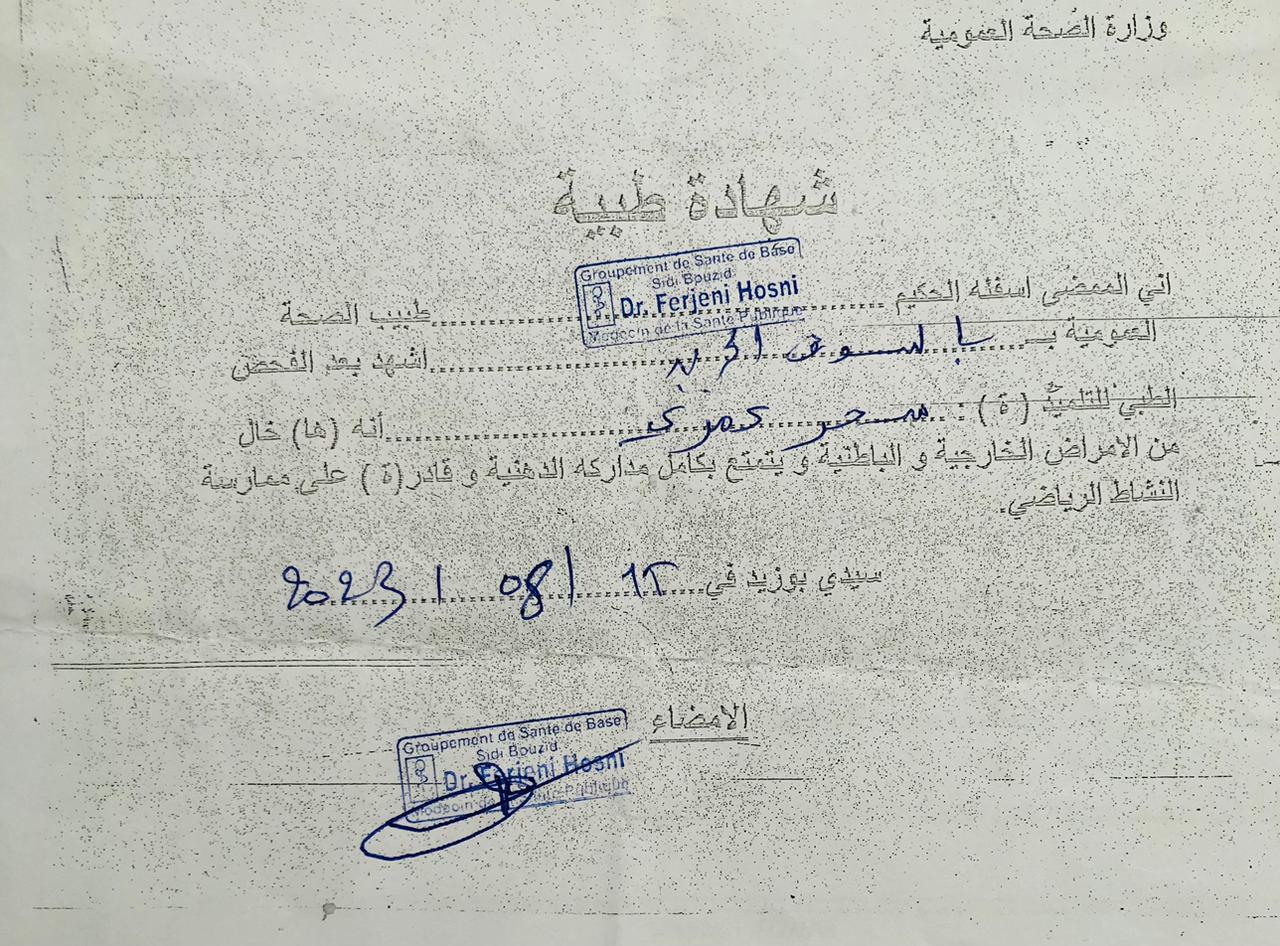 وزارة الصحة العمومية
شهادة طبية
Groupement de Sante de Base
Sidi Bouzid
Dr. Ferjeni Hosni
Medecin de la Sante Publique
اني الممضى اسفله الحكيم ........ طبيب الصحة
العمومية بـ ........ اشهد بعد الفحص
الطبي للتلميذ ( ة ) : سحر عمري ........ أنه (ها) خال
من الامراض الخارجية و الباطنية و يتمتع بكامل مداركه الذهنية و قادر(ة ) على ممارسة
النشاط الرياضي.
سيدي بوزيد في 12 / 08 / 2023
الامضاء
Groupement de Sante de Base
Sidi Bouzid
Dr. Ferjeni Hosni
Medecin de la Sante Publique